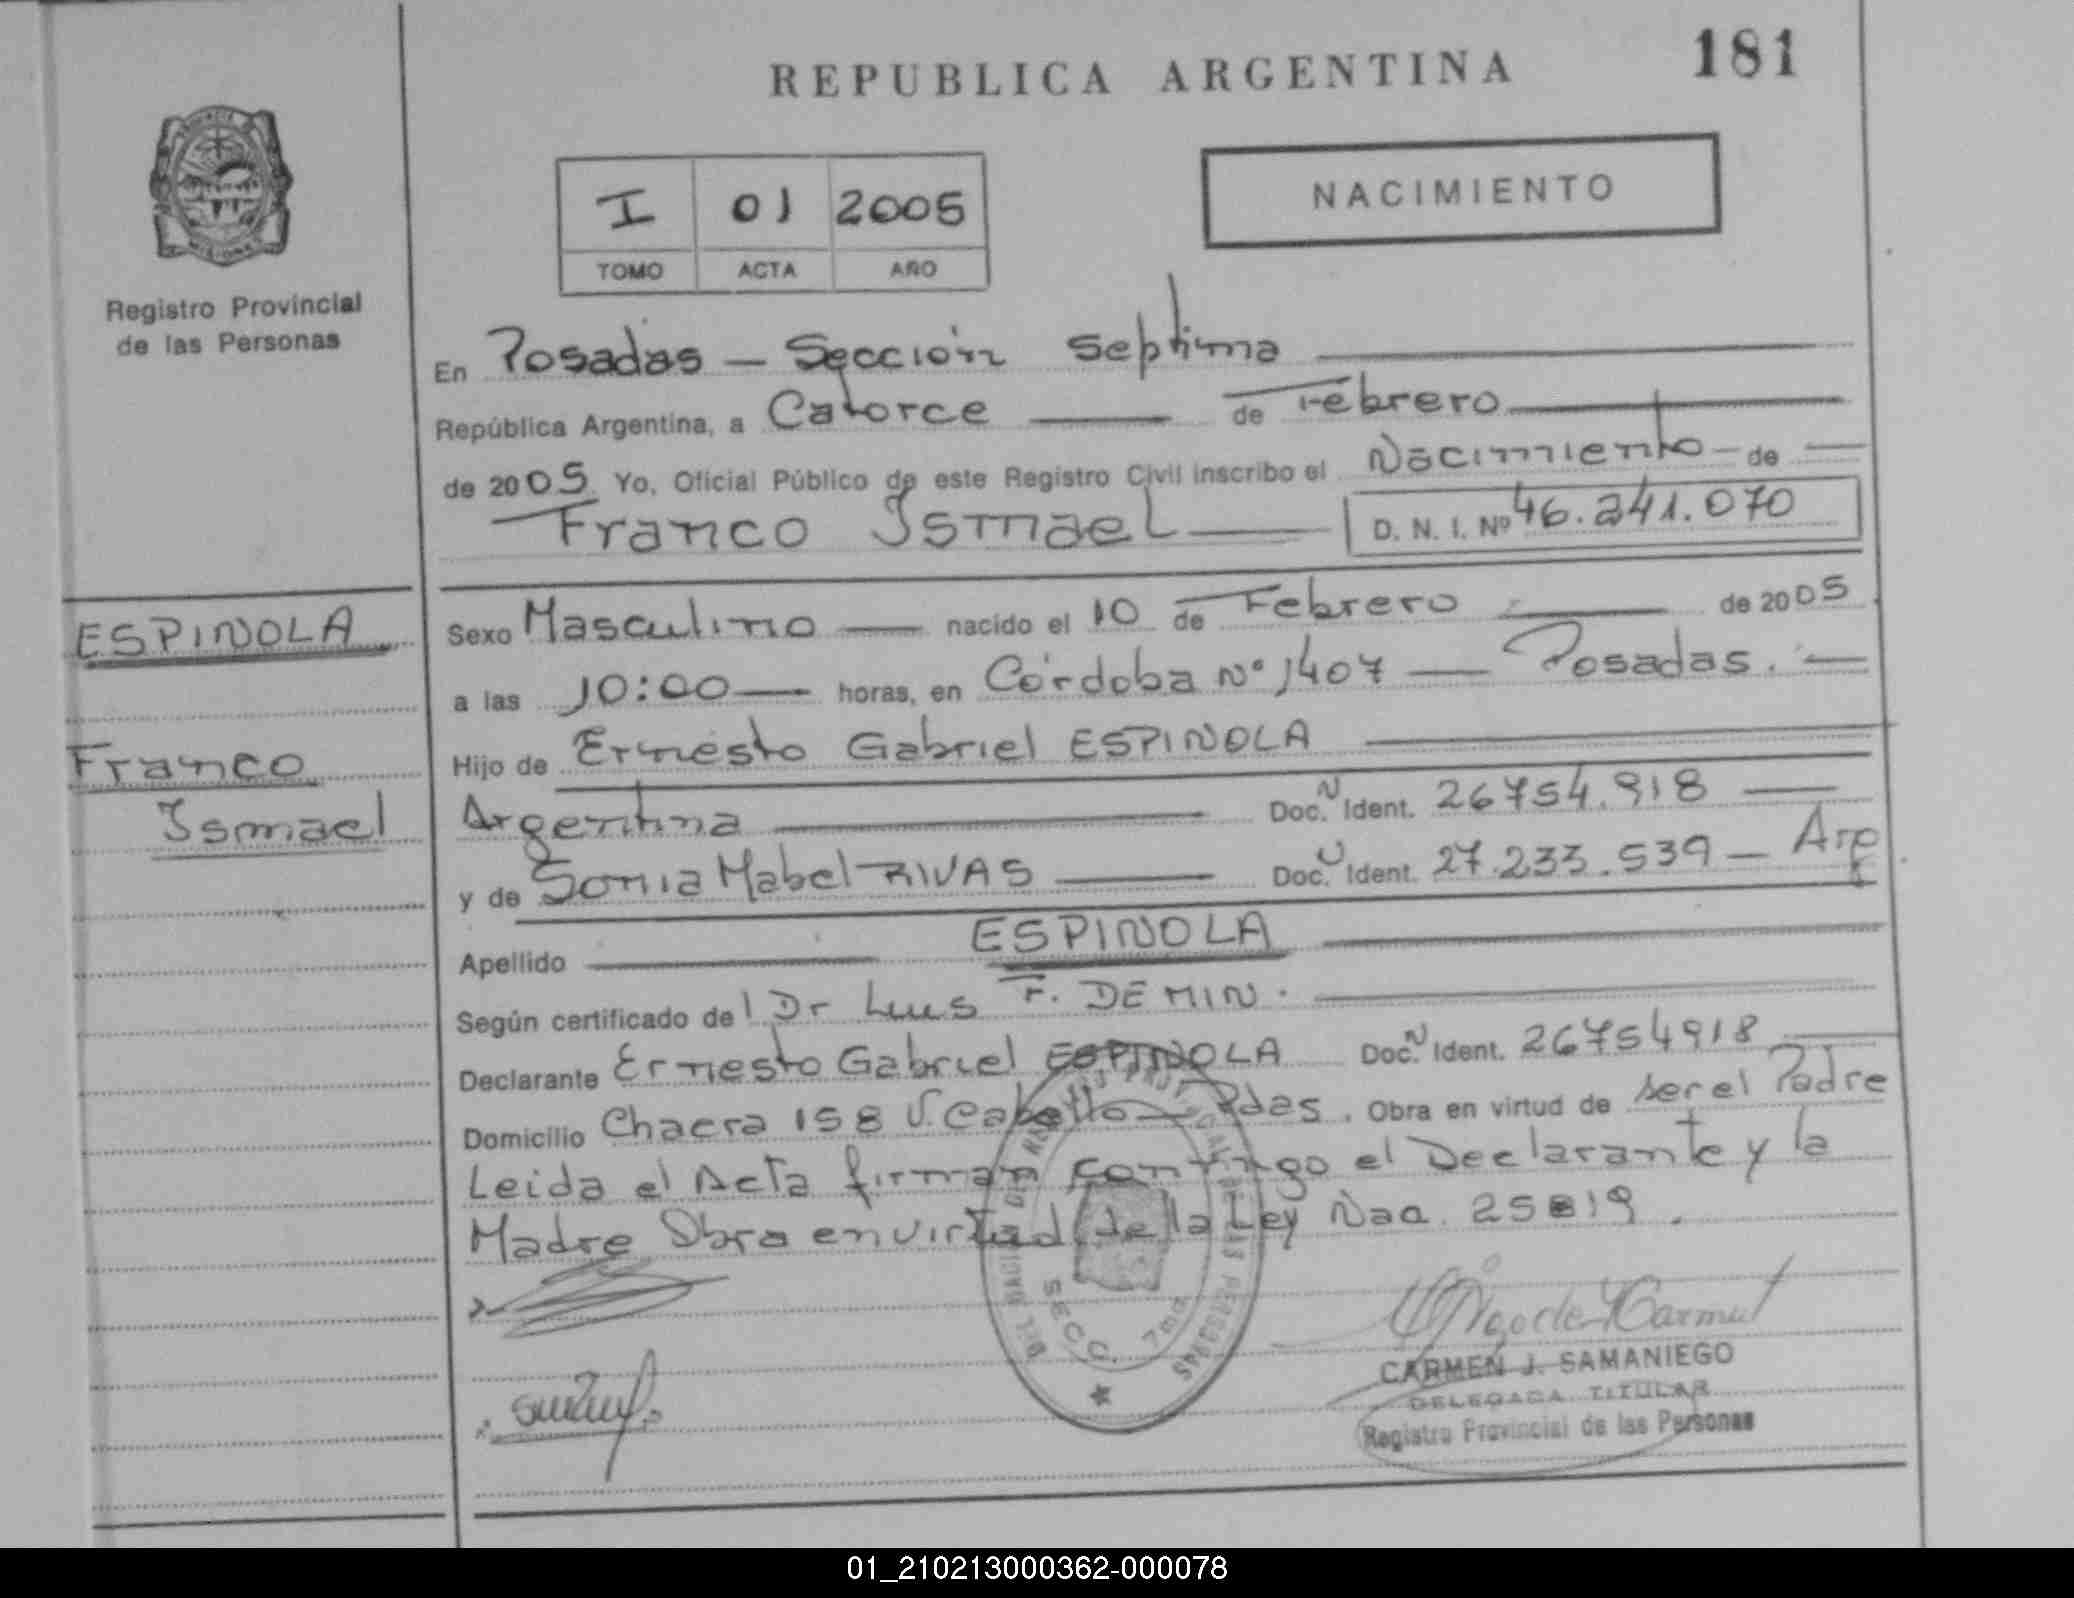 REPUBLICA ARGENTINA
181
I 01 2005
TOMO ACTA AÑO
NACIMIENTO
Registro Provincial
de las Personas
En Posadas - Sección Septima
República Argentina, a Catorce de Febrero
de 2005 Yo, Oficial Público de este Registro Civil inscribo el Nacimiento de
Franco Ismael
D. N. I. Nº 46.241.070
ESPINOLA
Franco
Ismael
Sexo Masculino nacido el 10 de Febrero de 2005
a las 10:00 horas, en Córdoba Nº 1407 Posadas.
Hijo de Ernesto Gabriel ESPINOLA
Argentina Doc. N Ident. 26754.918
y de Sonia Mabel RIVAS Doc. U Ident. 27.233.539 - Arg
Apellido ESPINOLA
Según certificado del Dr Luis F. DEMIN.
Declarante Ernesto Gabriel ESPINOLA Doc. N Ident. 26754918
Domicilio Chacra 158 V. Cabello - Pdas. Obra en virtud de ser el Padre
Leida el Acta firman conmigo el Declarante y la
Madre Obra en virtud de la Ley Nac. 25819.
SECC. 7ma
CARMEN J. SAMANIEGO
DELEGADA TITULAR
Registro Provincial de las Personas
01_210213000362-000078